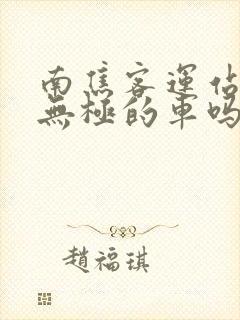 南焦客運佔
無極的車嗎
趙福琪